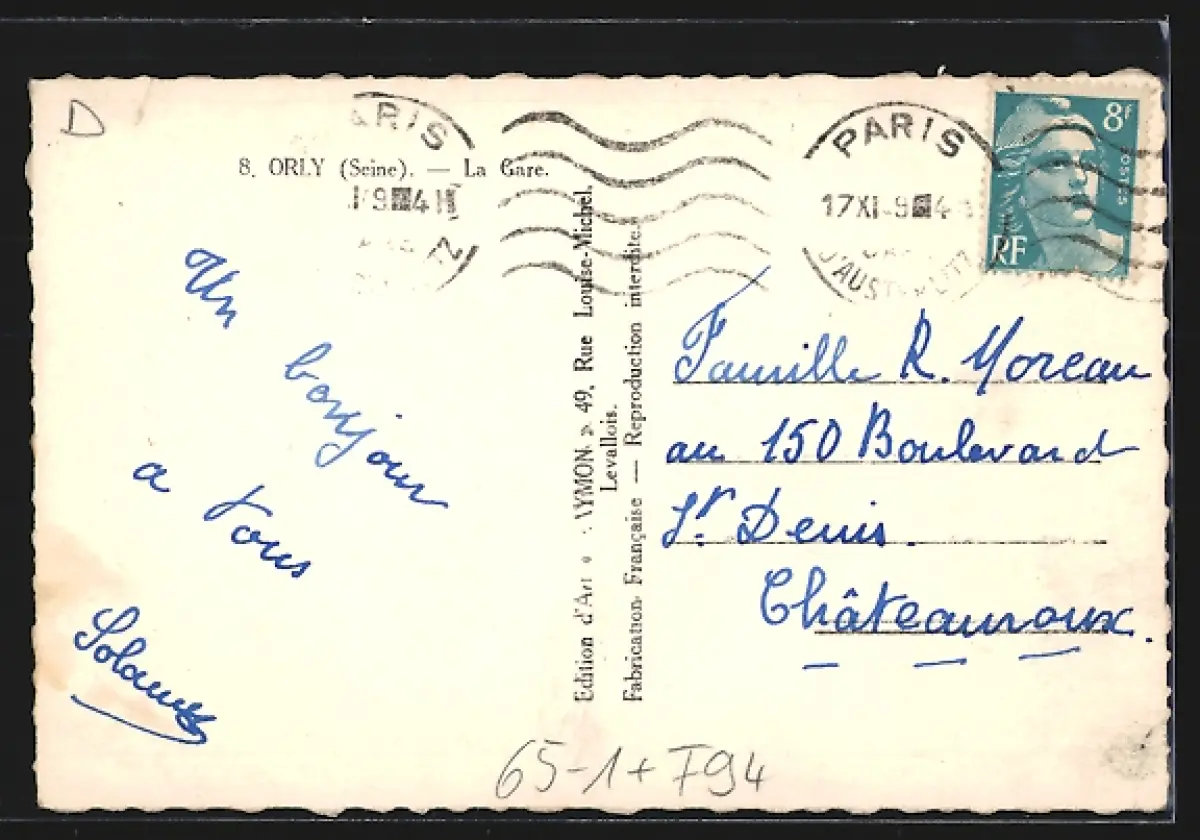 D
8. ORLY (Seine). — La Gare.
PARIS
8f
POSTES
RF
17 XI
Un
bonjour
a tous
Famille R. Moreau
au 150 Boulevard
St. Denis.
Châteauroux.
49, Rue Louise-Michel.
Levallois.
Fabrication Française — Reproduction interdite.
65-1+T94